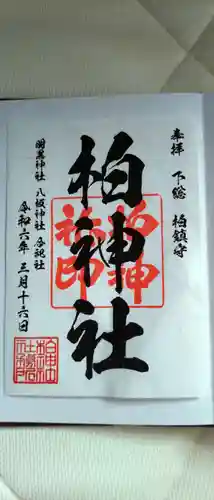 奉拝 下総 柏鎮守
柏神社
羽黒神社 八坂神社 合祀社
令和六年 三月十六日